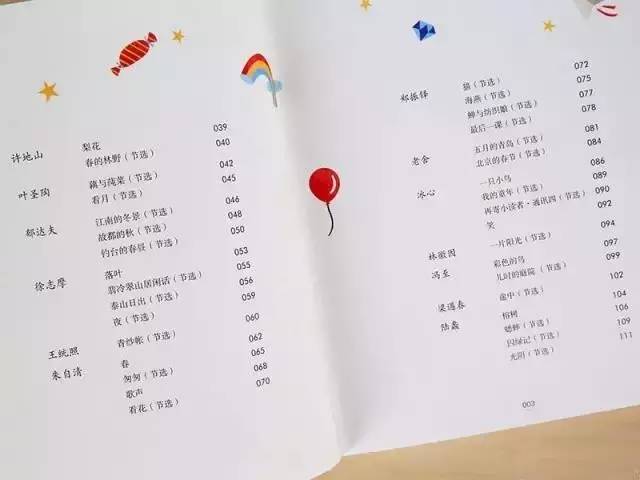 许地山 梨花 039
春的林野（节选） 040
叶圣陶 藕与莼菜（节选） 042
看月（节选） 045
郁达夫 江南的冬景（节选） 046
故都的秋（节选） 048
钓台的春昼（节选） 050
徐志摩 落叶 053
翡冷翠山居闲话（节选） 055
泰山日出（节选） 056
夜（节选） 059
王统照 青纱帐（节选） 060
朱自清 春 062
匆匆（节选） 065
歌声 068
看花（节选） 070
郑振铎 猫（节选） 072
海燕（节选） 075
蝉与纺织娘（节选） 077
最后一课（节选） 078
老舍 五月的青岛（节选） 081
北京的春节（节选） 084
冰心 一只小鸟 086
我的童年（节选） 089
再寄小读者·通讯四（节选） 090
笑 092
林徽因 一片阳光（节选） 094
冯至 彩色的鸟 097
儿时的庭院（节选） 099
梁遇春 途中（节选） 102
陆蠡 榕树 104
蟋蟀（节选） 106
囚绿记（节选） 109
光阴（节选） 111
003